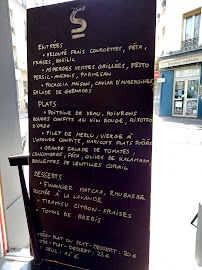 S
ENTRÉES
• VELOUTÉ FROID COURGETTES, FÉTA,
FRAISES, BASILIC
• ASPERGES VERTES GRILLÉES, PESTO
PERSIL-ANCHOIS, PARMESAN
• FOCACCIA MAISON, CAVIAR D'AUBERGINES,
SALADE DE GRENADES
PLATS
• POITRINE DE VEAU, POIVRONS
ROUGES CONFITS AU VIN ROUGE, RISOTTO
D'ORZO
• FILET DE MERLU, VIERGE À
L'ORANGE CONFITE, HARICOTS PLATS
• GRANDE SALADE DE TOMATES,
CONCOMBRES, FÉTA, OLIVES DE KALAMATA
BOULETTES DE LENTILLES CORAIL
DESSERTS
• FINANCIER MATCHA, RHUBARBE
À LA LAVANDE
• TIRAMISU CITRON-FRAISES
• TOMME DE BREBIS
PLAT OU PLAT-DESSERT: 20 €
PLAT-DESSERT: 23 €
SEUL: 15 €